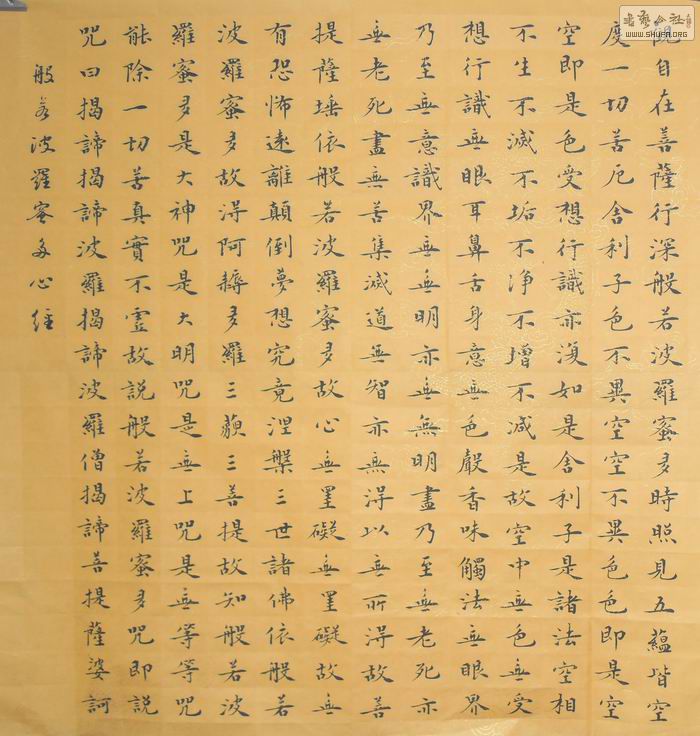 觀自在菩薩行深般若波羅蜜多時照見五蘊皆空
度一切苦厄舍利子色不異空空不異色色即是空
空即是色受想行識亦復如是舍利子是諸法空相
不生不滅不垢不淨不增不減是故空中無色無受
想行識無眼耳鼻舌身意無色聲香味觸法無眼界
乃至無意識界無無明亦無無明盡乃至無老死亦
無老死盡無苦集滅道無智亦無得以無所得故菩
提薩埵依般若波羅蜜多故心無罣礙無罣礙故無
有恐怖遠離顛倒夢想究竟涅槃三世諸佛依般若
波羅蜜多故得阿耨多羅三藐三菩提故知般若波
羅蜜多是大神咒是大明咒是無上咒是無等等咒
能除一切苦真實不虛故說般若波羅蜜多咒即說
咒曰揭諦揭諦波羅揭諦波羅僧揭諦菩提薩婆訶
般若波羅蜜多心經
书艺公社
WWW.SHUFA.ORG